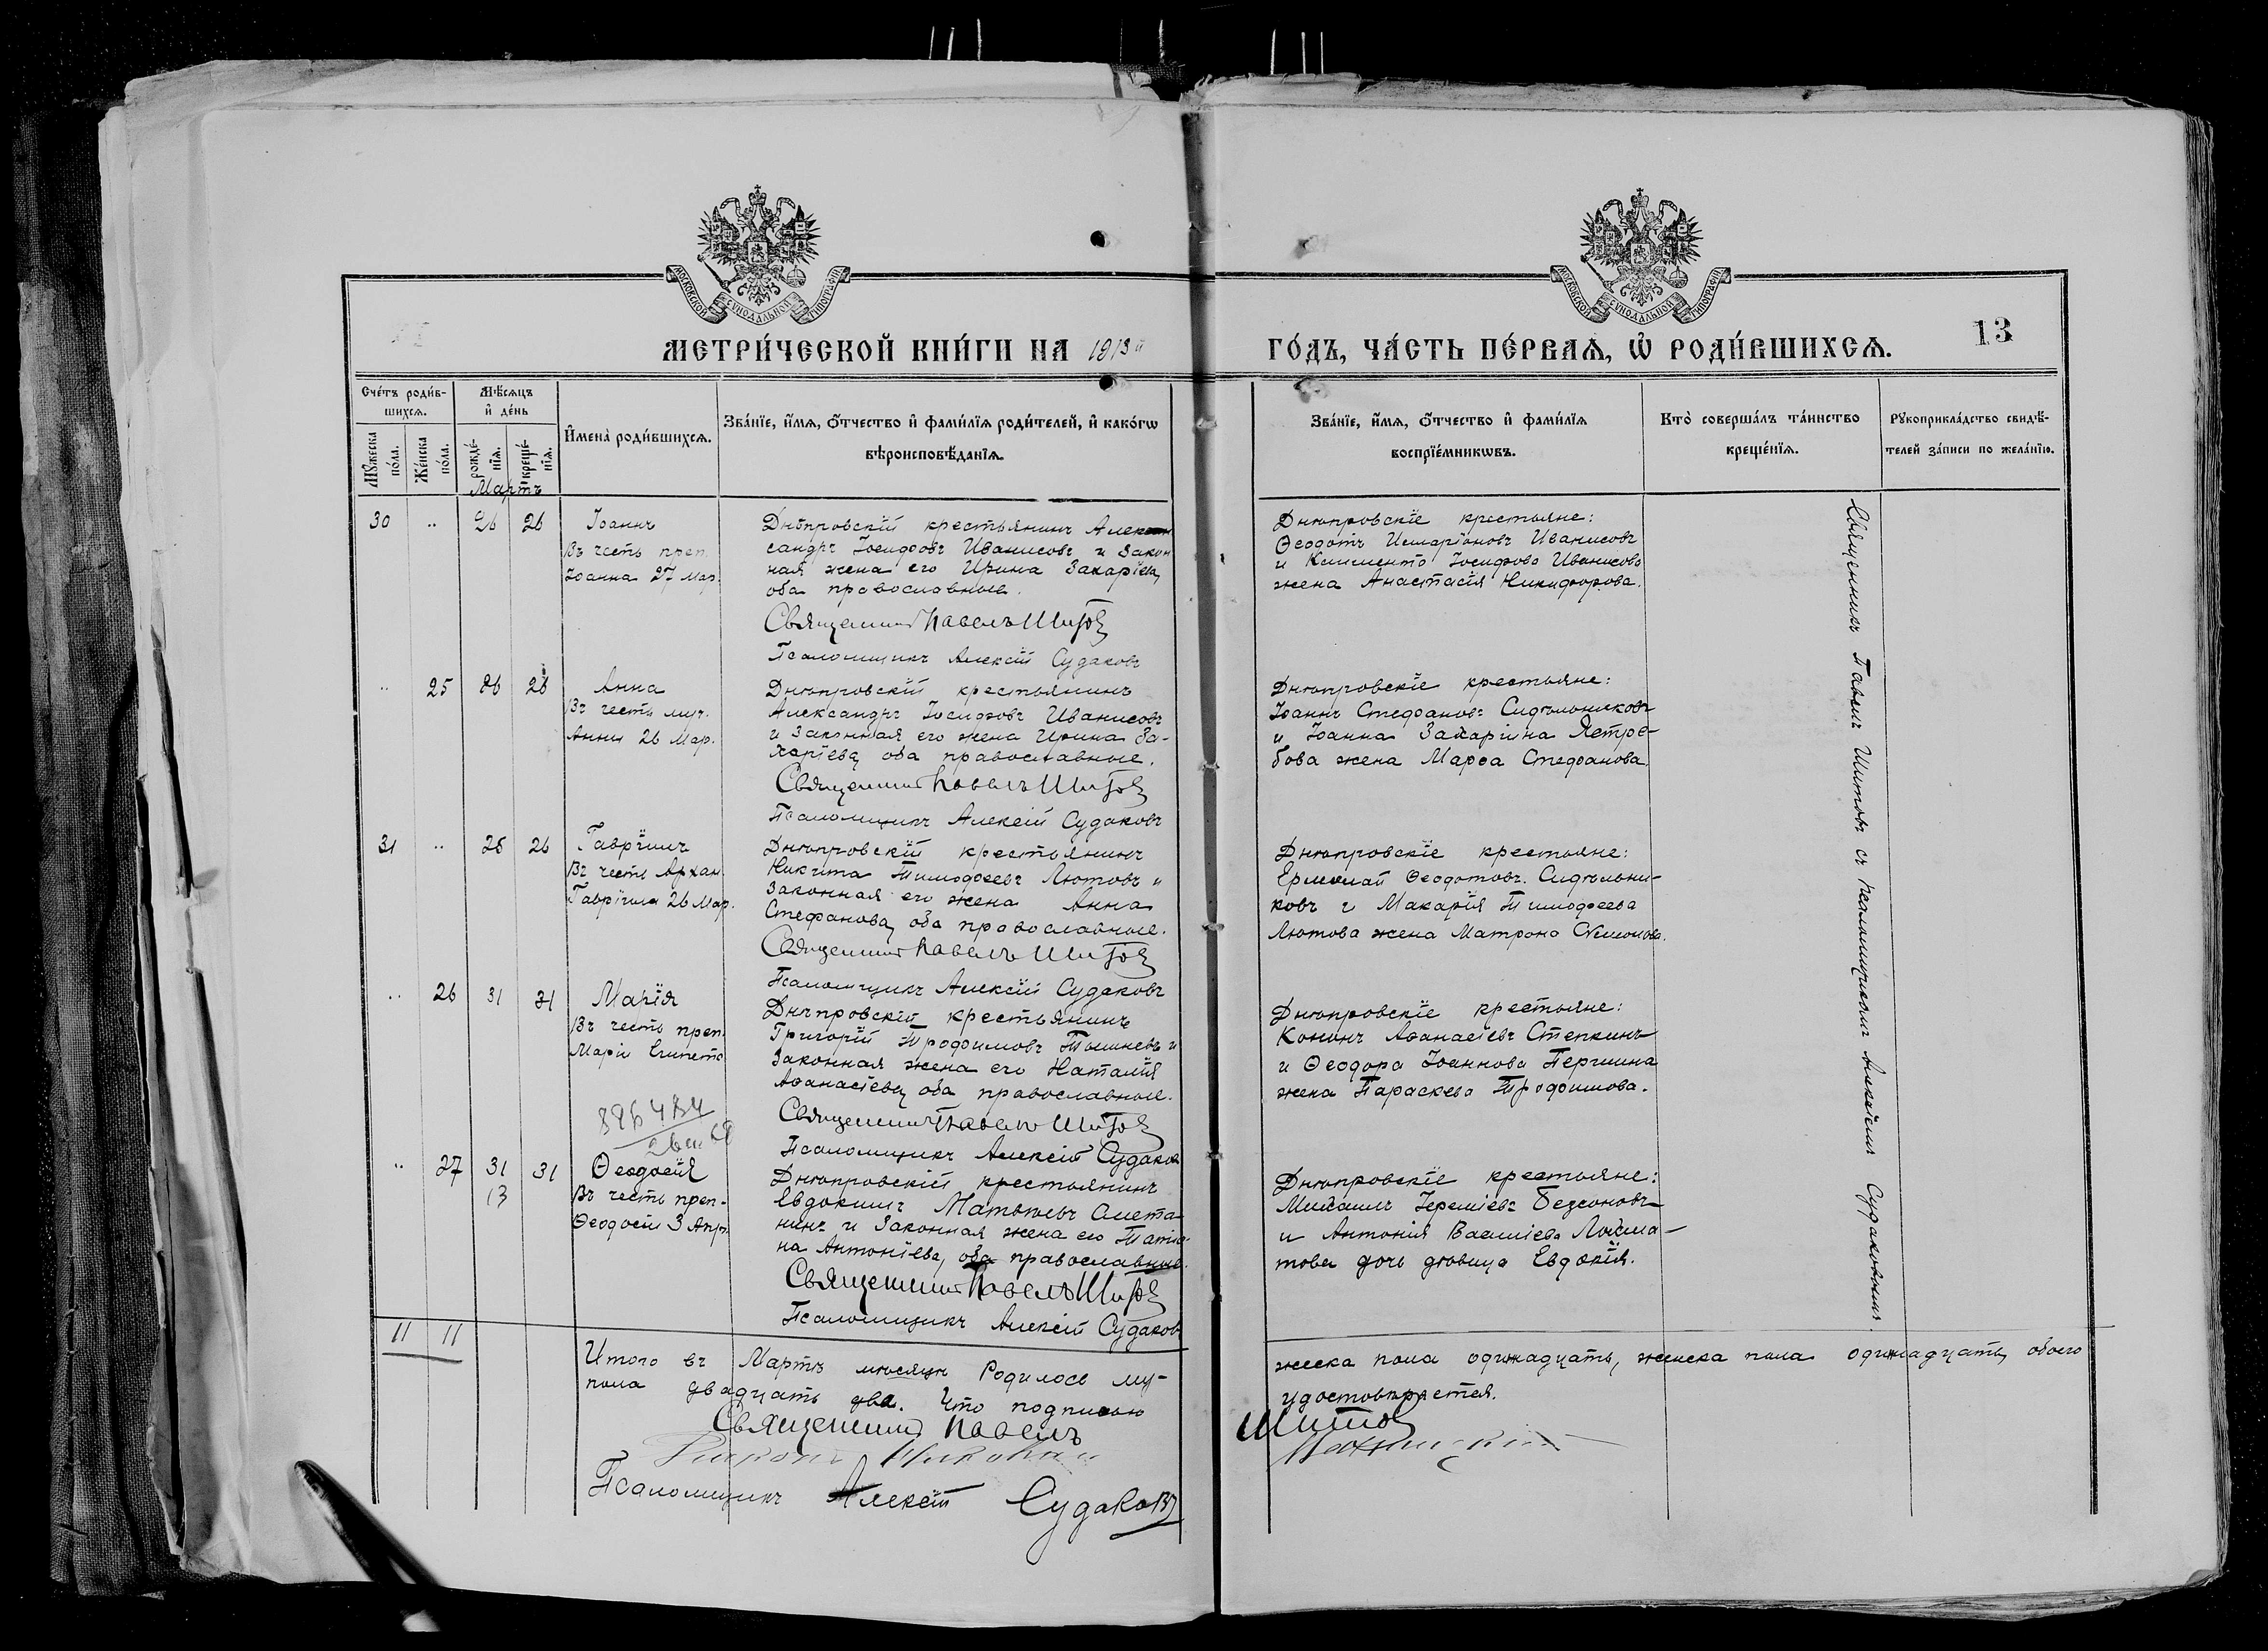 МОСКОВСКОЙ СУНОДАЛЬНОЙ ТИПОГРАФІИ
МОСКОВСКОЙ СУНОДАЛЬНОЙ ТИПОГРАФІИ
МЕТРИ́ЧЕСКОЙ КНИ́ГИ НА 1913й
ГО́ДЪ, ЧА́СТЬ ПЕ́РВАѦ, Ѡ҆ РОДИ́ВШИХСѦ.
13
Сче́тъ роди́в-
шихсѧ.
Мѣ́сѧцъ
и҆ де́нь
Мꙋ́жеска
по́ла.
Же́нска
по́ла.
рожде́-
нїѧ.
креще́-
нїѧ.
И҆мена̀ роди́вшихсѧ.
Зва́нїе, и҆́мѧ, ѻ҆́тчество и҆ фами́лїѧ роди́телей, и҆ како́гѡ
вѣроисповѣ́данїѧ.
Зва́нїе, и҆́мѧ, ѻ҆́тчество и҆ фами́лїѧ
воспрїе́мникѡвъ.
Кто̀ соверша́лъ та́инство
креще́нїѧ.
Рꙋкоприкла́дство свидѣ́-
телей за́писи по жела́нїю.
Мартъ
30 .. 26 26 Іоаннъ
Въ честь преп.
Іоанна 27 Мар.
Днѣпровскій крестьянинъ Алек
сандръ Іосифовъ Иванисовъ и закон
ная жена его Ирина Захаріева,
оба православные.
Священникъ Павелъ Шитов
Псаломщикъ Алексій Судаковъ
Днѣпровскіе крестьяне:
Ѳеодотъ Иларіоновъ Иванисовъ
и Климента Іосифова Иванисова
жена Анастасія Никифорова.
.. 25 26 26 Анна
Въ честь муч.
Анны 26 Мар.
Днѣпровскій крестьянинъ
Александръ Іосифовъ Иванисовъ
и законная его жена Ирина За-
харіева, оба православные.
Священникъ Павелъ Шитов
Псаломщикъ Алексій Судаковъ
Днѣпровскіе крестьяне:
Іоаннъ Стефановъ Сидѣльниковъ
и Іоанна Захарина Ястре-
бова жена Марѳа Стефанова
31 .. 25 26 Гавріилъ
Въ честь Архан.
Гавріила 26 Мар.
Днѣпровскій крестьянинъ
Никита Тимофеевъ Лютовъ и
законная его жена Анна
Стефанова, оба православные.
Священникъ Павелъ Шитов
Псаломщикъ Алексій Судаковъ
Днѣпровскіе крестьяне:
Ермолай Ѳеодотовъ Сидѣльни-
ковъ и Макарія Тимофеева
Лютова жена Матрона Семонова.
.. 26 31 31 Марія
Въ честь преп.
Маріи Египетс.
Днѣпровскій крестьянинъ
Григорій Трофимовъ и
законная жена его Наталія
Аѳанасіева, оба православные.
Священникъ Павелъ Шитов
Псаломщикъ Алексій Судаков
Днѣпровскіе крестьяне:
Кононъ Аѳанасіевъ Степкинъ
и Ѳеодора Іоаннова Першина
жена Параскева Трофимова.
.. 27 31 31 Ѳеодосія
13
Въ честь преп.
Ѳеодосіи 3 Апр.
Днѣпровскій крестьянинъ
Евдокимъ Матвѣевъ Смета-
нинъ и законная жена его Татья
на Антоніева, оба православные.
Священникъ Павелъ Шитов
Псаломщикъ Алексій Судаковъ
Днѣпровскіе крестьяне:
Михаилъ Іереміевъ Безсоновъ
и Антонія Васильева Лохма-
това дочь дѣвица Евдокія.
Священникъ Павелъ Шитовъ съ псаломщикомъ Алексіемъ Судаковымъ.
11 11
Итого въ Мартѣ мѣсяцѣ родилось му-
жеска пола одинадцать, женска пола одинадцать, обоего
пола двадцать два. Что подписью
удостовѣряется.
Священникъ Павелъ Шитов
Псаломщикъ Алексій Судаковъ